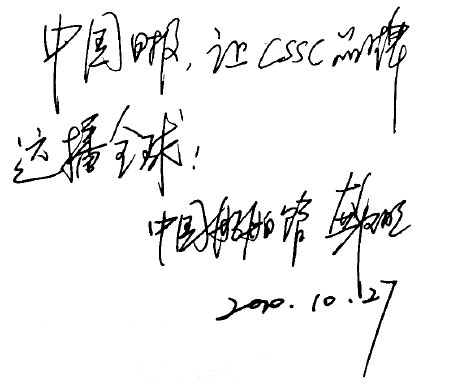 中国日报,让CSSC品牌
远播全球!
中国船舶馆
2010.10.27